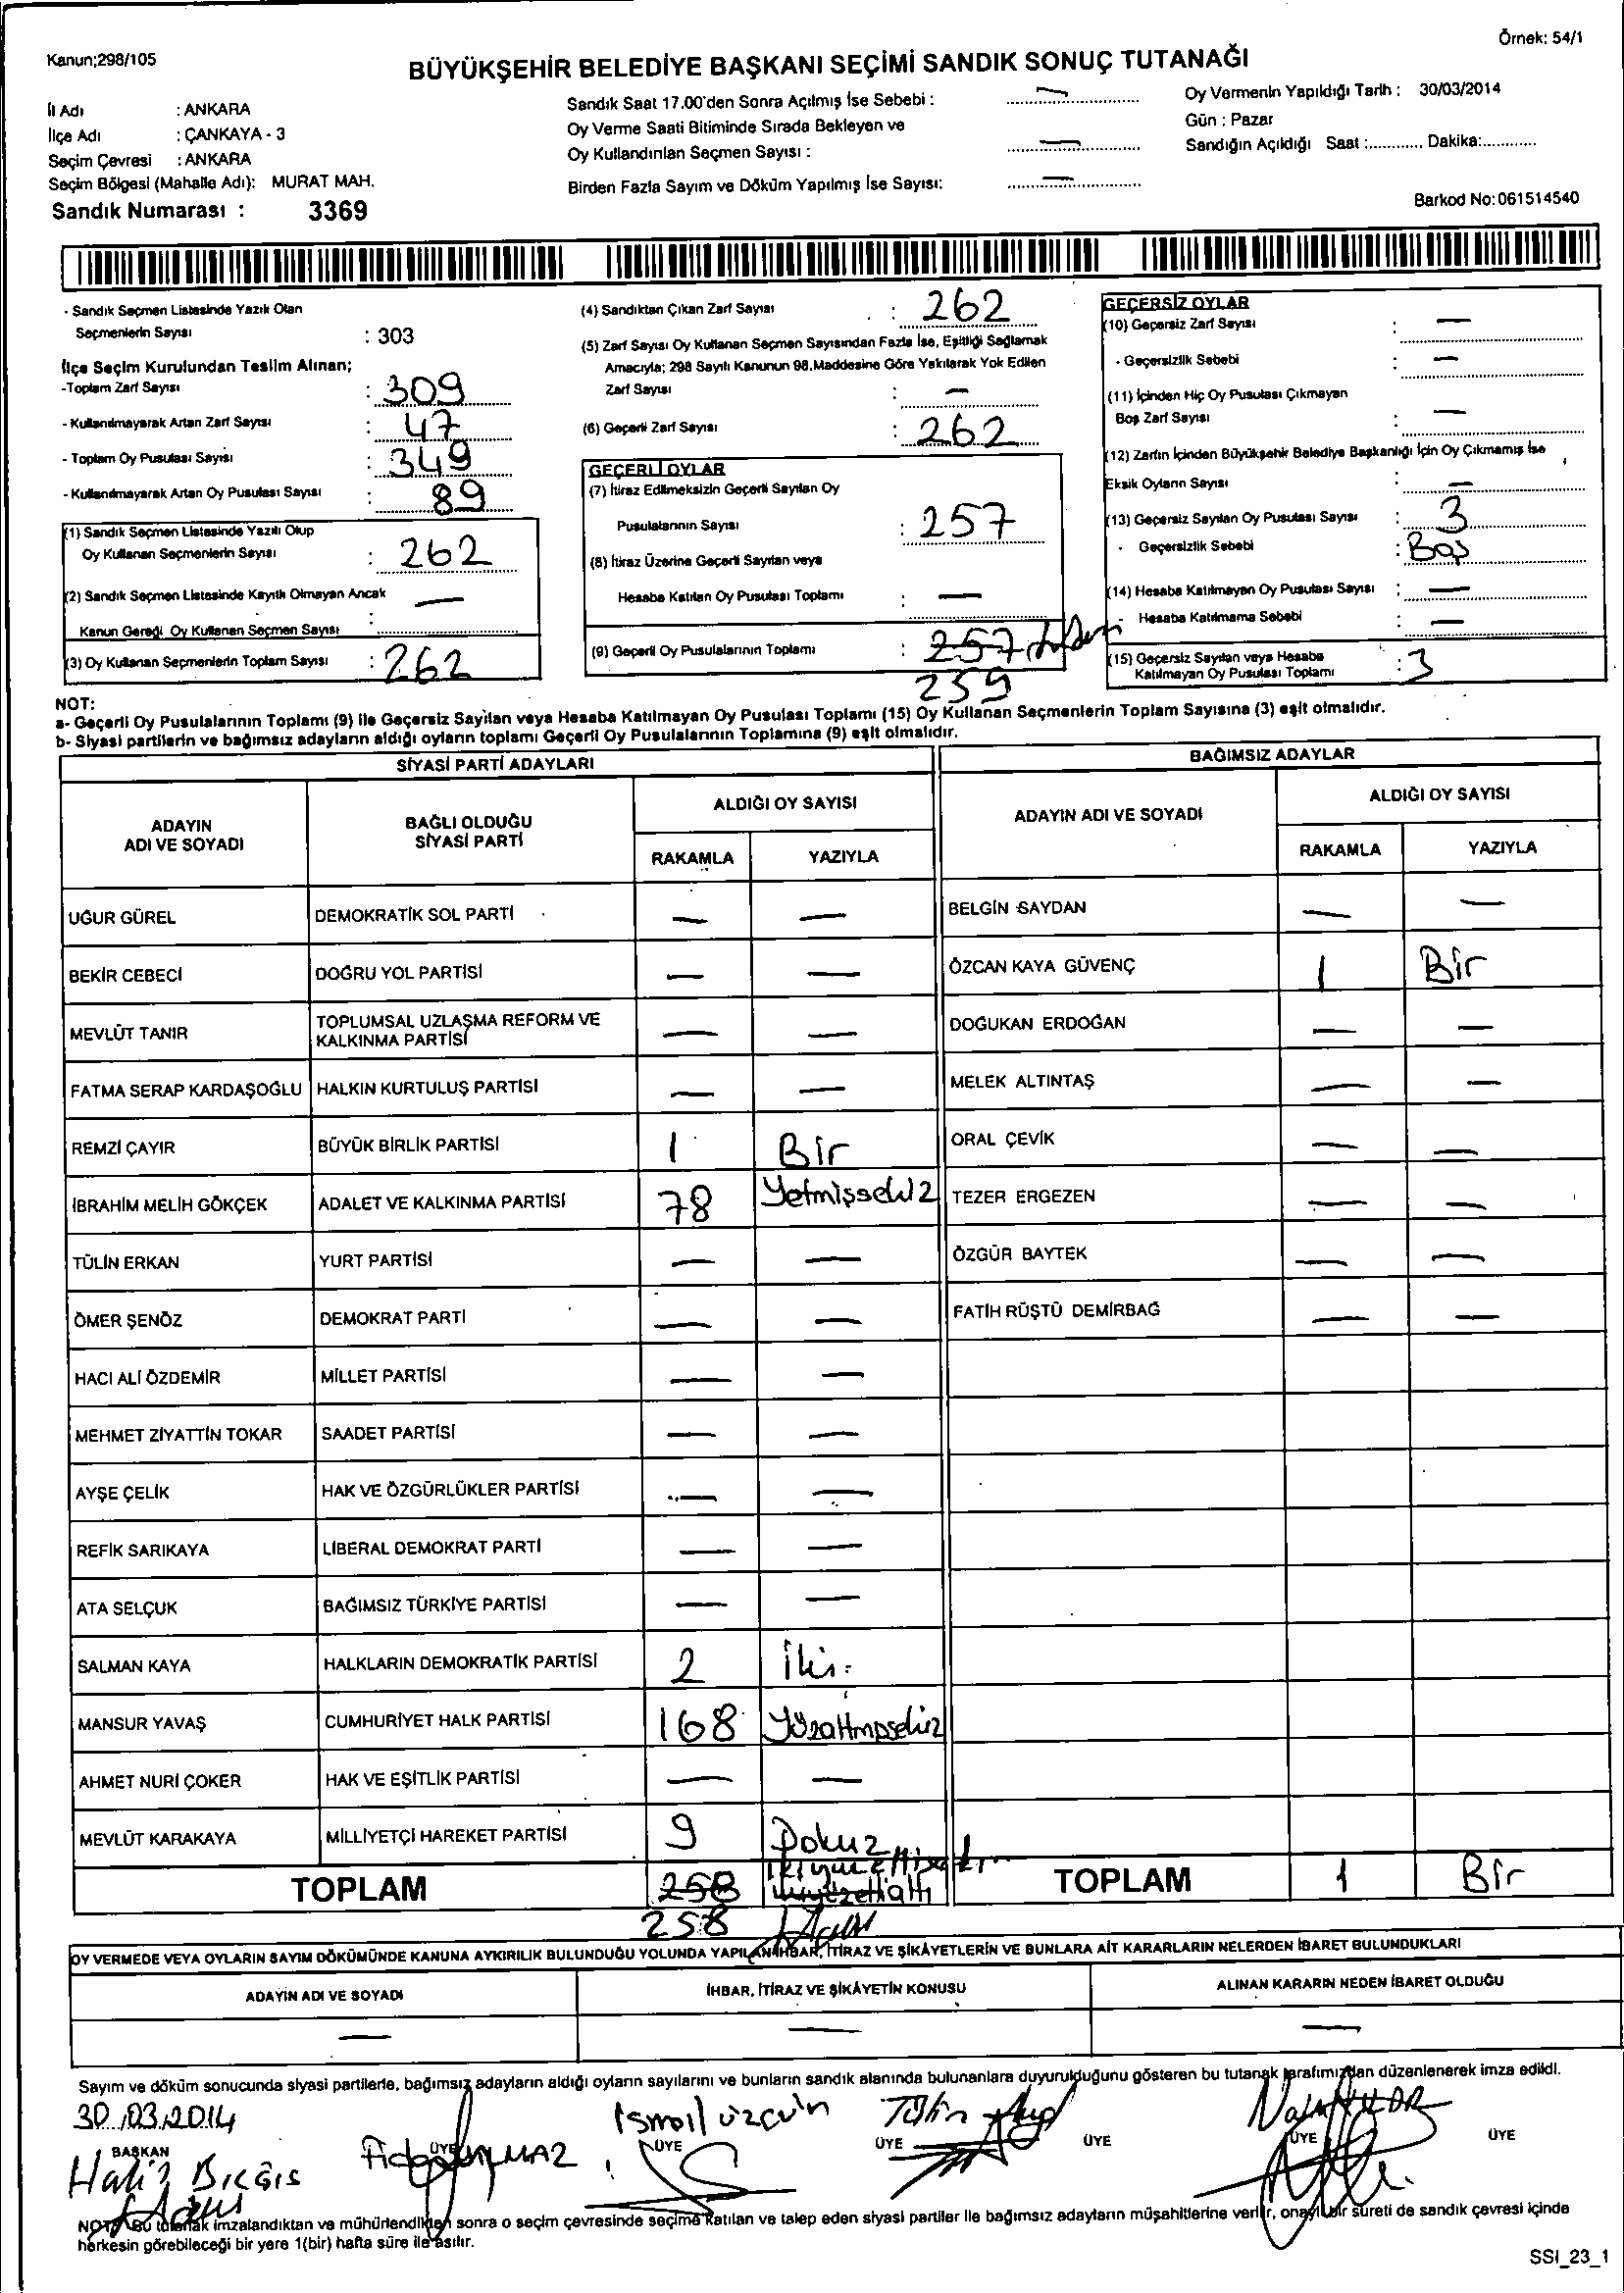 Kanun;298/105
Örnek: 54/1
BÜYÜKŞEHİR BELEDİYE BAŞKANI SEÇİMİ SANDIK SONUÇ TUTANAĞI
İl Adı : ANKARA
İlçe Adı : ÇANKAYA - 3
Seçim Çevresi : ANKARA
Seçim Bölgesi (Mahalle Adı): MURAT MAH.
Sandık Numarası : 3369
Sandık Saat 17.00'den Sonra Açılmış İse Sebebi : —
Oy Verme Saati Bitiminde Sırada Bekleyen ve
Oy Kullandırılan Seçmen Sayısı : —
Birden Fazla Sayım ve Döküm Yapılmış İse Sayısı: —
Oy Vermenin Yapıldığı Tarih : 30/03/2014
Gün : Pazar
Sandığın Açıldığı Saat :............ Dakika:............
Barkod No:061514540
- Sandık Seçmen Listesinde Yazılı Olan
Seçmenlerin Sayısı : 303
İlçe Seçim Kurulundan Teslim Alınan;
-Toplam Zarf Sayısı : 309
- Kullanılmayarak Artan Zarf Sayısı : 47
- Toplam Oy Pusulası Sayısı : 349
- Kullanılmayarak Artan Oy Pusulası Sayısı : 89
(1) Sandık Seçmen Listesinde Yazılı Olup
Oy Kullanan Seçmenlerin Sayısı : 262
(2) Sandık Seçmen Listesinde Kayıtlı Olmayan Ancak
Kanun Gereği Oy Kullanan Seçmen Sayısı : —
(3) Oy Kullanan Seçmenlerin Toplam Sayısı : 262
(4) Sandıktan Çıkan Zarf Sayısı : 262
(5) Zarf Sayısı Oy Kullanan Seçmen Sayısından Fazla İse, Eşitliği Sağlamak
Amacıyla; 298 Sayılı Kanunun 98.Maddesine Göre Yakılarak Yok Edilen
Zarf Sayısı : —
(6) Geçerli Zarf Sayısı : 262
GEÇERLİ OYLAR
(7) İtiraz Edilmeksizin Geçerli Sayılan Oy
Pusulalarının Sayısı : 257
(8) İtiraz Üzerine Geçerli Sayılan veya
Hesaba Katılan Oy Pusulası Toplamı : —
(9) Geçerli Oy Pusulalarının Toplamı : 257
259
GEÇERSİZ OYLAR
(10) Geçersiz Zarf Sayısı : —
- Geçersizlik Sebebi : —
(11) İçinden Hiç Oy Pusulası Çıkmayan
Boş Zarf Sayısı : —
(12) Zarfın İçinden Büyükşehir Belediye Başkanlığı İçin Oy Çıkmamış İse
Eksik Oyların Sayısı : —
(13) Geçersiz Sayılan Oy Pusulası Sayısı : 3
- Geçersizlik Sebebi : Boş
(14) Hesaba Katılmayan Oy Pusulası Sayısı : —
- Hesaba Katılmama Sebebi : —
(15) Geçersiz Sayılan veya Hesaba
Katılmayan Oy Pusulası Toplamı : 3
NOT:
a- Geçerli Oy Pusulalarının Toplamı (9) ile Geçersiz Sayılan veya Hesaba Katılmayan Oy Pusulası Toplamı (15) Oy Kullanan Seçmenlerin Toplam Sayısına (3) eşit olmalıdır.
b- Siyasi partilerin ve bağımsız adayların aldığı oyların toplamı Geçerli Oy Pusulalarının Toplamına (9) eşit olmalıdır.
SİYASİ PARTİ ADAYLARI
ADAYIN ADI VE SOYADI
BAĞLI OLDUĞU SİYASİ PARTİ
ALDIĞI OY SAYISI
RAKAMLA YAZIYLA
UĞUR GÜREL DEMOKRATİK SOL PARTİ — —
BEKİR CEBECİ DOĞRU YOL PARTİSİ — —
MEVLÜT TANIR TOPLUMSAL UZLAŞMA REFORM VE KALKINMA PARTİSİ — —
FATMA SERAP KARDAŞOĞLU HALKIN KURTULUŞ PARTİSİ — —
REMZİ ÇAYIR BÜYÜK BİRLİK PARTİSİ 1 Bir
İBRAHİM MELİH GÖKÇEK ADALET VE KALKINMA PARTİSİ 78 Yetmişsekiz
TÜLİN ERKAN YURT PARTİSİ — —
ÖMER ŞENÖZ DEMOKRAT PARTİ — —
HACI ALİ ÖZDEMİR MİLLET PARTİSİ — —
MEHMET ZİYATTİN TOKAR SAADET PARTİSİ — —
AYŞE ÇELİK HAK VE ÖZGÜRLÜKLER PARTİSİ — —
REFİK SARIKAYA LİBERAL DEMOKRAT PARTİ — —
ATA SELÇUK BAĞIMSIZ TÜRKİYE PARTİSİ — —
SALMAN KAYA HALKLARIN DEMOKRATİK PARTİSİ 2 İki
MANSUR YAVAŞ CUMHURİYET HALK PARTİSİ 168 Yüzaltmışsekiz
AHMET NURİ ÇOKER HAK VE EŞİTLİK PARTİSİ — —
MEVLÜT KARAKAYA MİLLİYETÇİ HAREKET PARTİSİ 9 Dokuz
TOPLAM
258
BAĞIMSIZ ADAYLAR
ADAYIN ADI VE SOYADI
ALDIĞI OY SAYISI
RAKAMLA YAZIYLA
BELGİN SAYDAN — —
ÖZCAN KAYA GÜVENÇ 1 Bir
DOĞUKAN ERDOĞAN — —
MELEK ALTINTAŞ — —
ORAL ÇEVİK — —
TEZER ERGEZEN — —
ÖZGÜR BAYTEK — —
FATİH RÜŞTÜ DEMİRBAĞ — —
TOPLAM 1 Bir
OY VERMEDE VEYA OYLARIN SAYIM DÖKÜMÜNDE KANUNA AYKIRILIK BULUNDUĞU YOLUNDA YAPILAN İHBAR, İTİRAZ VE ŞİKÂYETLERİN VE BUNLARA AİT KARARLARIN NELERDEN İBARET BULUNDUKLARI
ADAYIN ADI VE SOYADI İHBAR, İTİRAZ VE ŞİKÂYETİN KONUSU ALINAN KARARIN NEDEN İBARET OLDUĞU
— — —
Sayım ve döküm sonucunda siyasi partilerle, bağımsız adayların aldığı oyların sayılarını ve bunların sandık alanında bulunanlara duyurulduğunu gösteren bu tutanak tarafımızdan düzenlenerek imza edildi.
30.03.2014
İsmail Tülin
BAŞKAN ÜYE ÜYE ÜYE ÜYE ÜYE ÜYE
NOT: Bu tutanak imzalandıktan ve mühürlendikten sonra o seçim çevresinde seçime katılan ve talep eden siyasi partiler ile bağımsız adayların müşahitlerine verilir, onaylı bir sureti de sandık çevresi içinde
herkesin görebileceği bir yere 1(bir) hafta süre ile asılır.
SSI_23_1